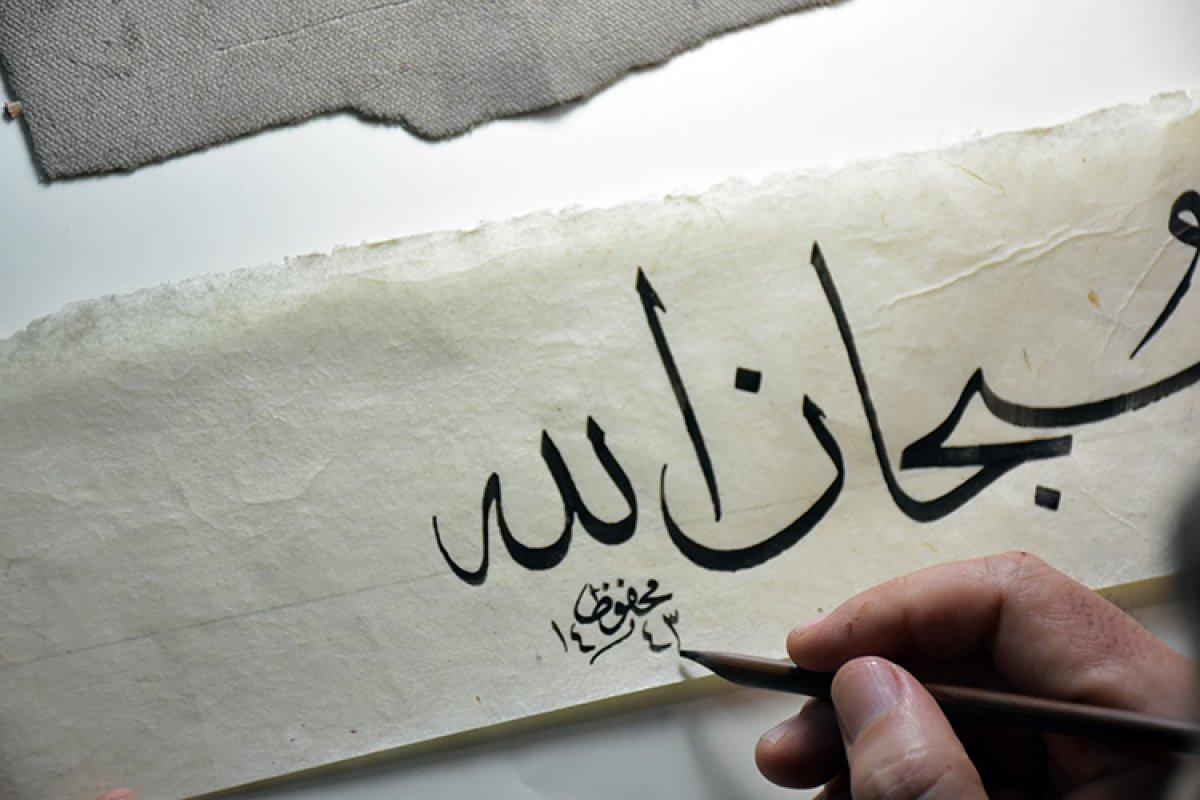 سُبحان الله
محفوظ
١٤٤٣